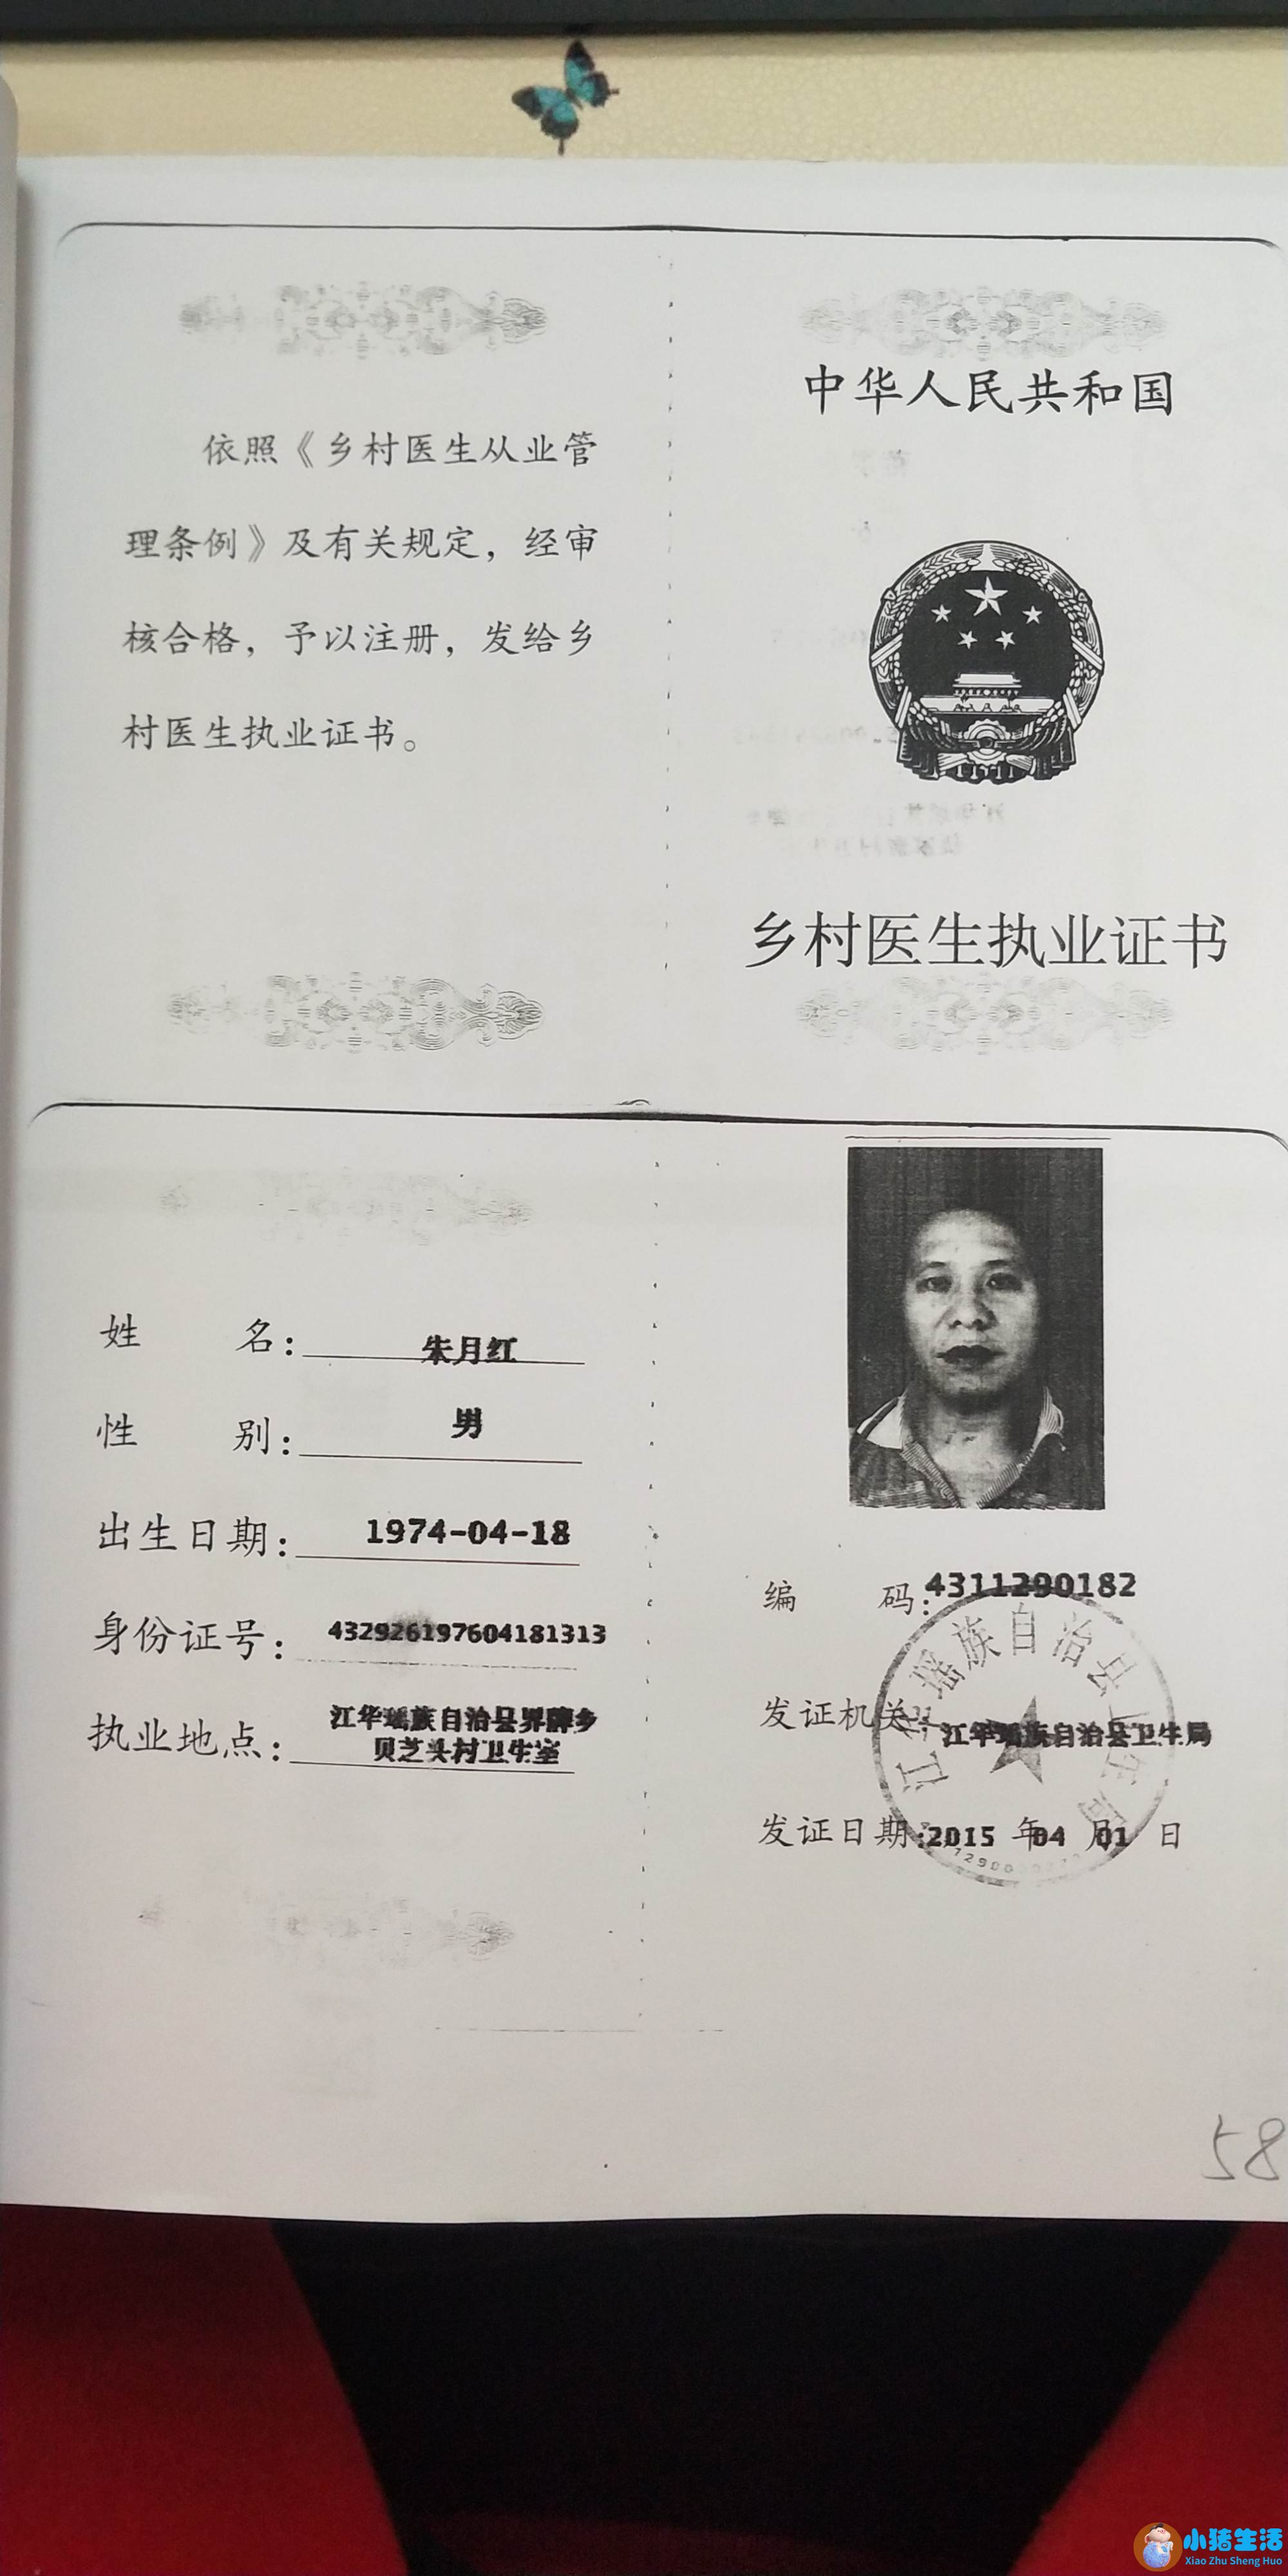 中华人民共和国
乡村医生执业证书
依照《乡村医生从业管
理条例》及有关规定，经审
核合格，予以注册，发给乡
村医生执业证书。
姓名：朱月红
性别：男
出生日期：1974-04-18
身份证号：432926197604181313
执业地点：江华瑶族自治县界牌乡
贝芝头村卫生室
编码：4311290182
发证机关：江华瑶族自治县卫生局
发证日期：2015 年 04 月 01 日
江华瑶族自治县卫生局
58
小猪生活
Xiao Zhu Sheng Huo